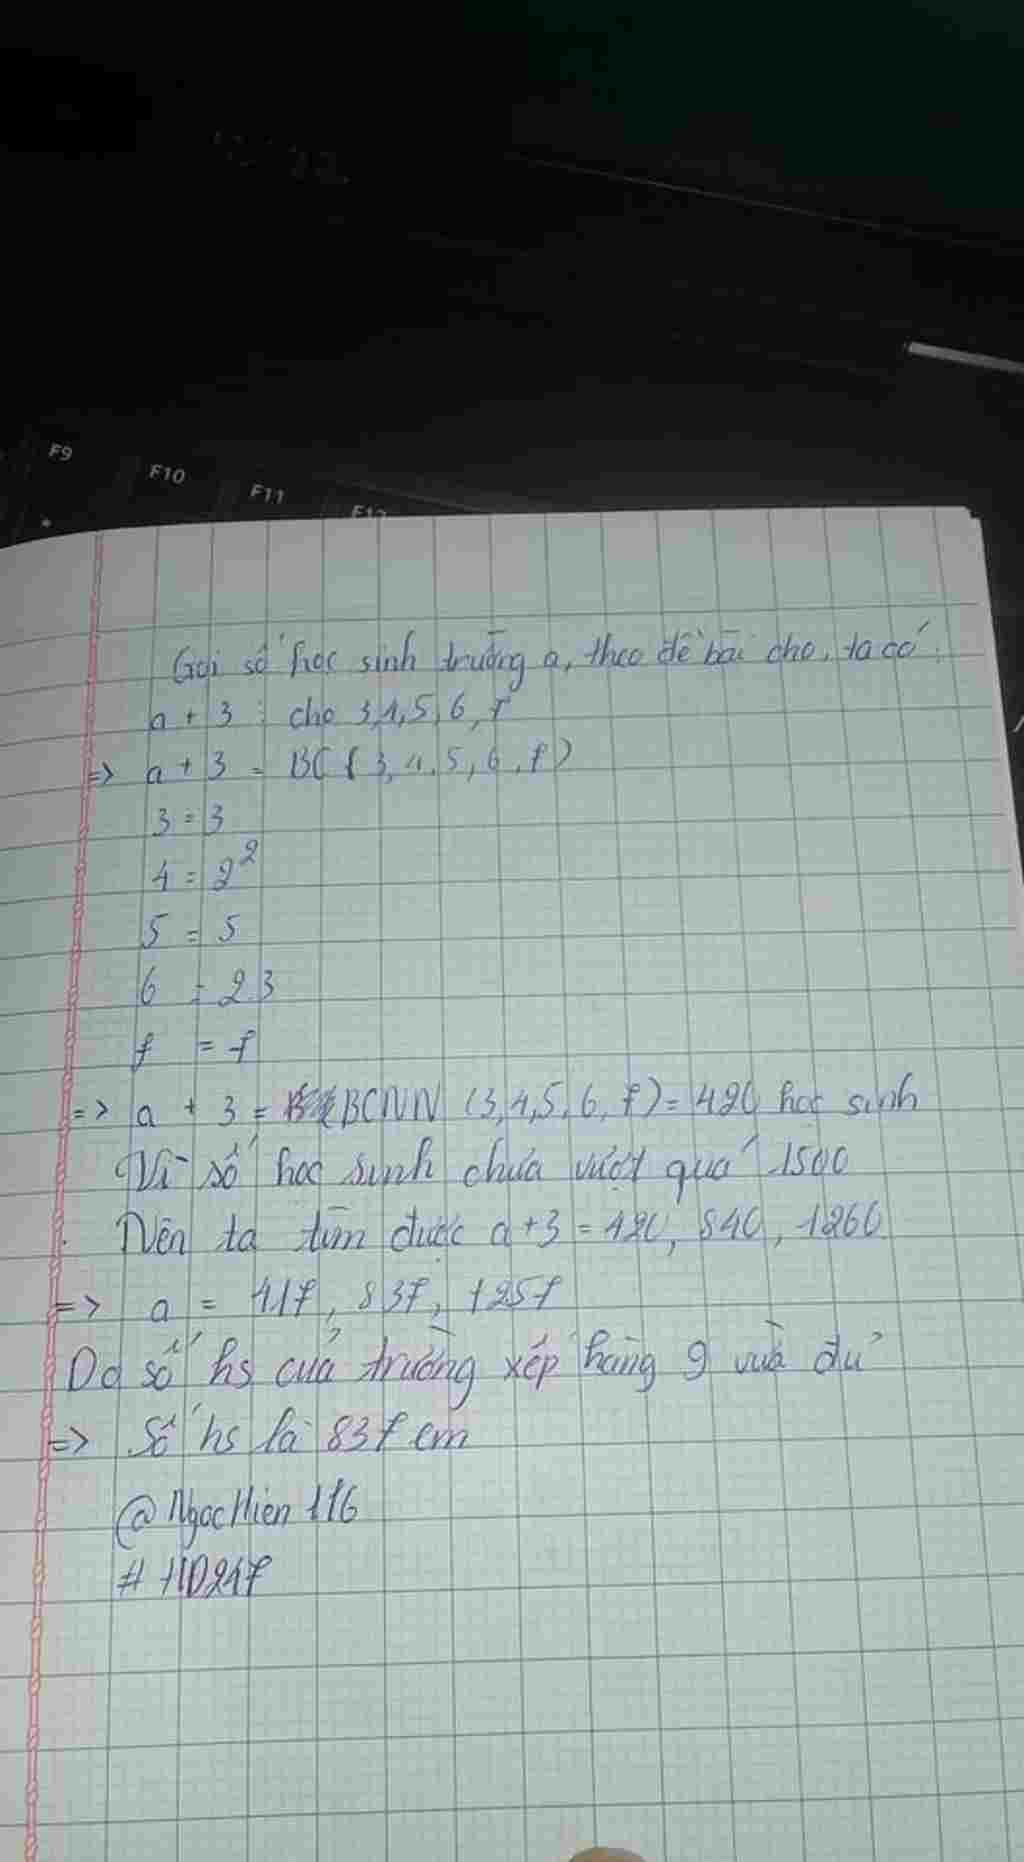 F9
F10
F11
F12
Gọi số học sinh trường a, theo đề bài cho, ta có:
a + 3 : cho 3,4,5,6,7
=> a + 3 = BC (3,4,5,6,7)
3 = 3
4 = 2²
5 = 5
6 = 2.3
7 = 7
=> a + 3 = BCNN (3,4,5,6,7) = 420 học sinh
Vì số học sinh chưa vượt quá 1500
Nên ta tìm được a+3 = 420, 840, 1260
=> a = 417, 837, 1257
Do số hs của trường xếp hàng 9 vừa đủ
=> Số hs là 837 em
@NgocHien116
# HD247